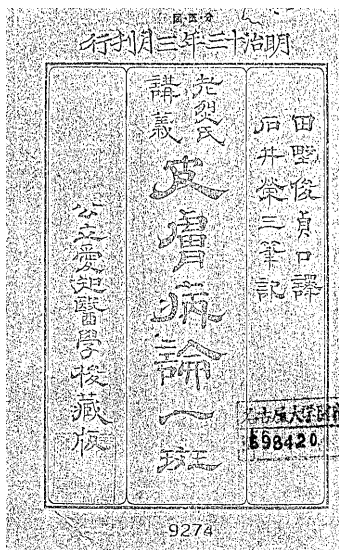 明治十三年三月刊行
田野俊貞口譯
石井榮三筆記
老烈氏
講義
皮膚病論一班
公立愛知醫學校藏版
名古屋大学図
9274